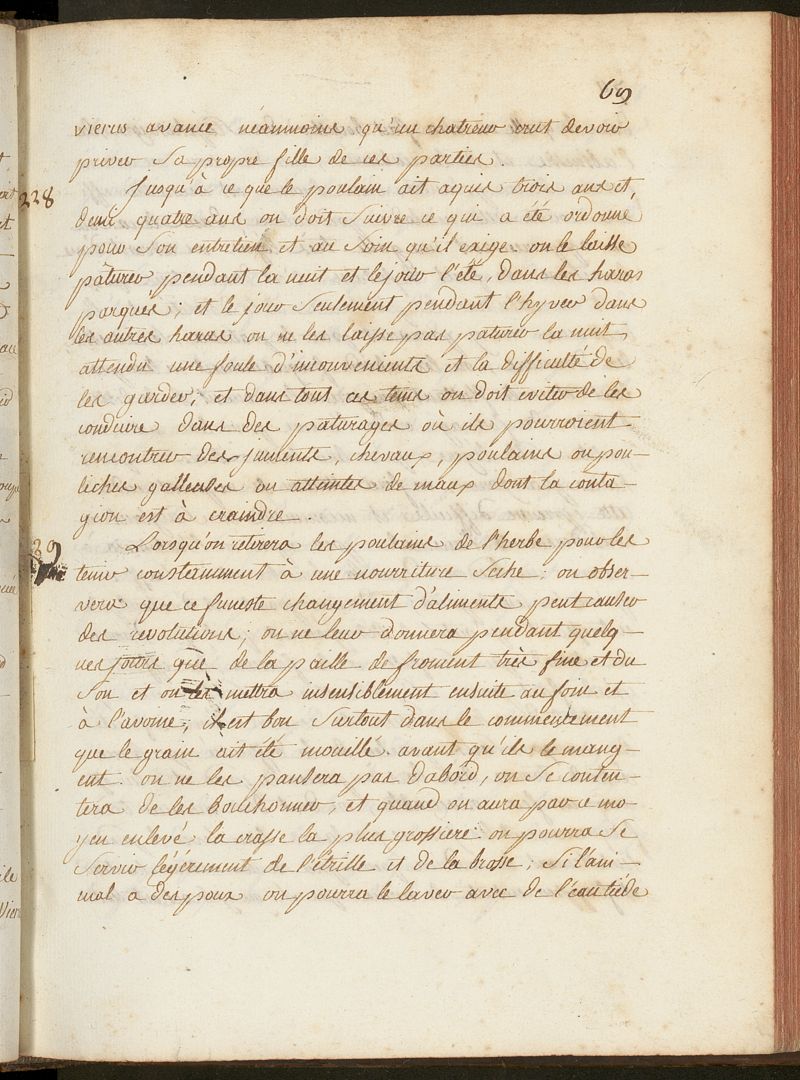 69
vierus avance néanmoins qu'un chatreur crut devoir
priver sa propre fille de ces parties.
228
Jusqu'à ce que le poulain ait aquis trois ans et
demi quatre ans on doit suivre ce qui a été ordonné
pour son entretien et au soin qu'il exige. on le laisse
pâturer pendant la nuit et le jour l'été, dans les haras
parqués; et le jour seulement pendant l'hyver dans
les autres haras on ne les laisse pas paturer la nuit
attendu une foule d'inconvenients et la difficulté de
les garder; et dans tous ces tems on doit eviter de les
conduire dans des paturages où ils pourroient
rencontrer des juments, chevaux, poulains ou pou-
liches galleuses ou atteintes de maux dont la conta-
gion est à craindre.
29
Lorsqu'on retirera les poulains de l'herbe pour les
tenir constamment à une nourriture seche; on obser-
vera que ce funeste changement d'aliments peut causer
des revolutions; on ne leur donnera pendant quelq-
ues jours que de la paille de froment très fine et du
son et on les mettra insensiblement ensuite au foin et
à l'avoine; il est bon surtout dans le commencement
que le grain ait été mouillé avant qu'ils le mang-
ent. on ne les pansera pas d'abord, on se conten-
tera de les bouchonner, et quand on aura par ce mo-
yen enlevé la crasse la plus grossiere on pourra se
servir légérement de l'étrille et de la brosse; si l'ani-
mal a des poux on pourra le laver avec de l'eau tiéde